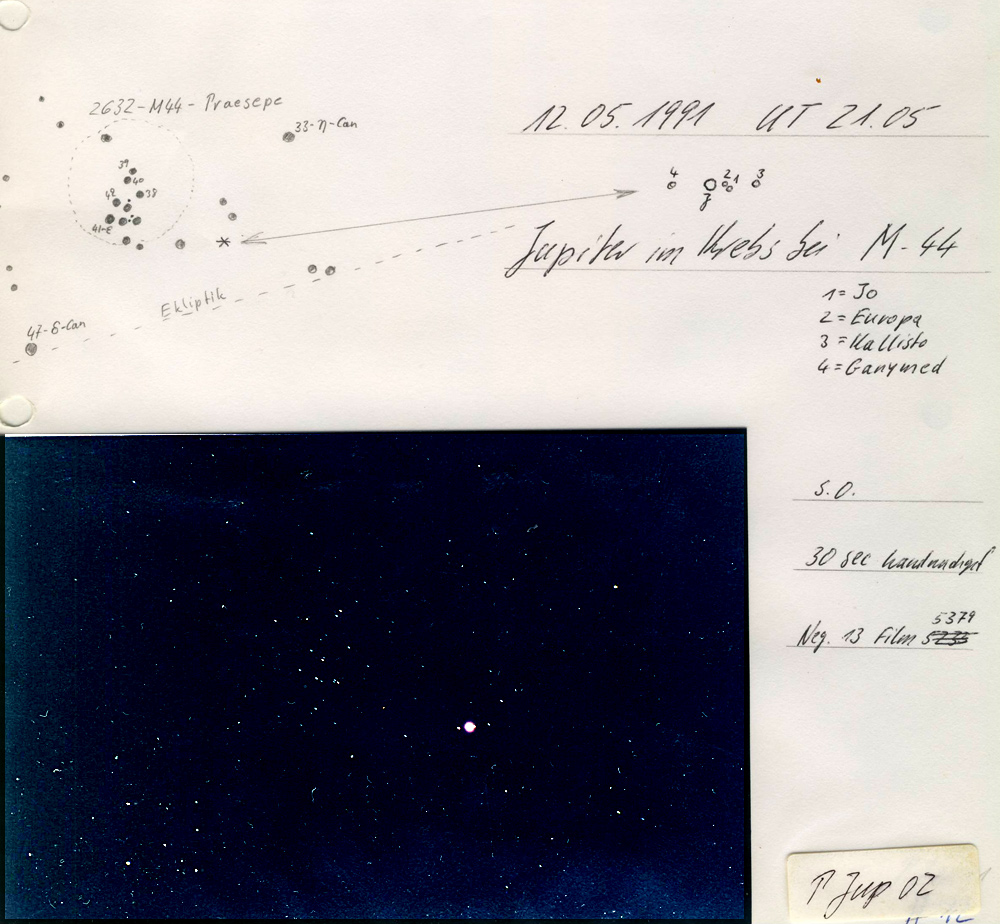 2632-M44-Praesepe
33-η-Can
39
40
42
38
41-ε
Ekliptik
47-δ-Can
12.05.1991 UT 21.05
4 2 1 3
Jupiter im Krebs bei M-44
1 = Jo
2 = Europa
3 = Kallisto
4 = Ganymed
S.O.
30 sec handnachgef
5379
Neg. 13 Film
P Jup 02